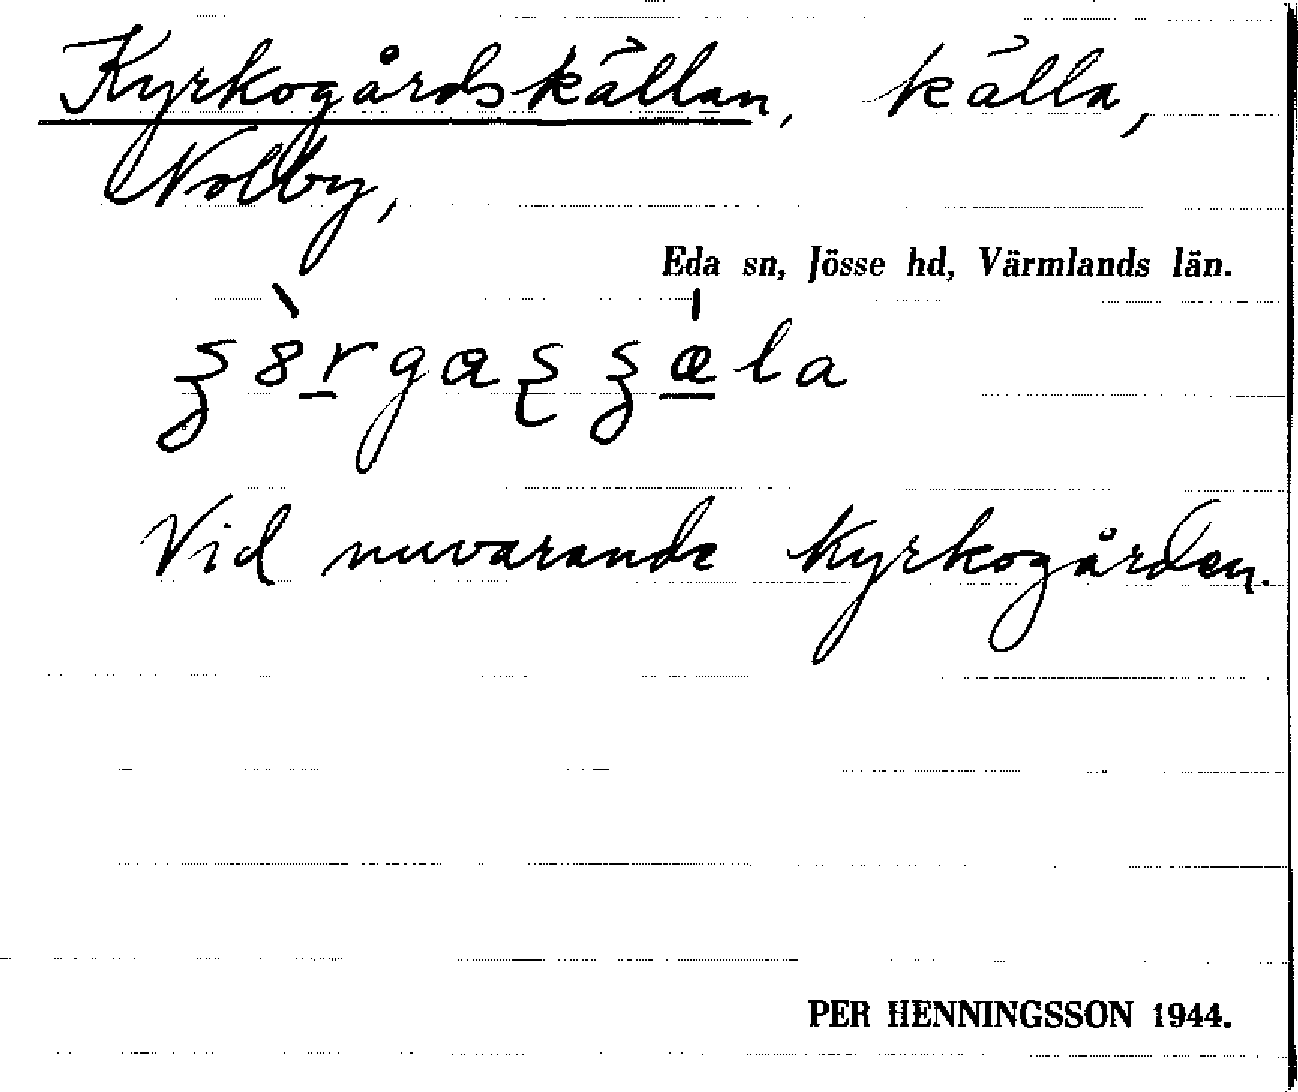 Kyrkogårdskällan, källa,
Nolby,
Eda sn, Jösse hd, Värmlands län.
Vid nuvarande kyrkogården.
PER HENNINGSSON 1944.